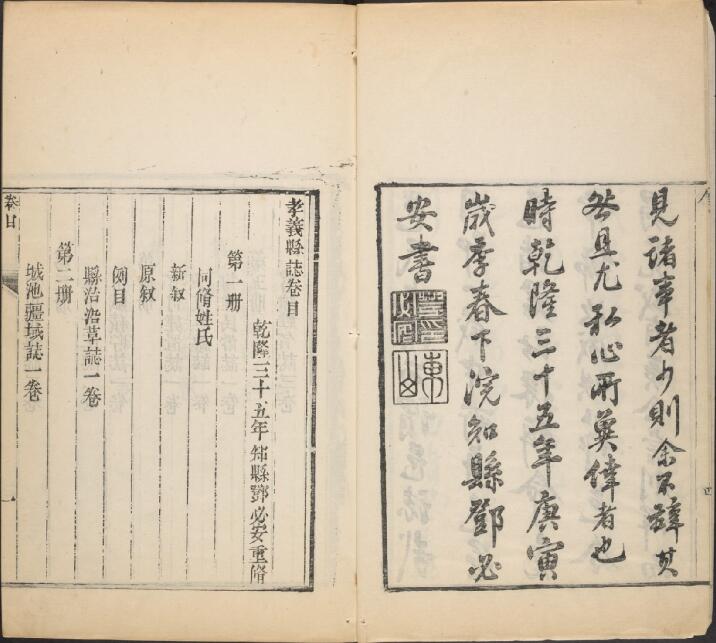 見諸事者少則余不辭其
咎且尤私心所冀倖者也
時乾隆三十五年庚寅
歲季春下浣知縣鄧必
安書
東山
孝義縣誌卷目
乾隆三十五年知縣鄧必安重脩
第一册
同脩姓氏
新叙
原叙
例目
縣治沿革誌一卷
第二册
城池疆域誌一卷
卷目